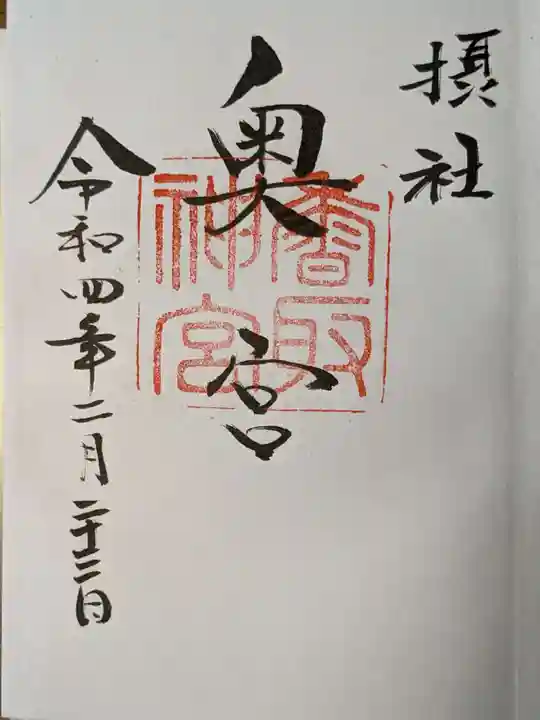 摂社
奥宮
香取
神宮
令和四年二月二十三日